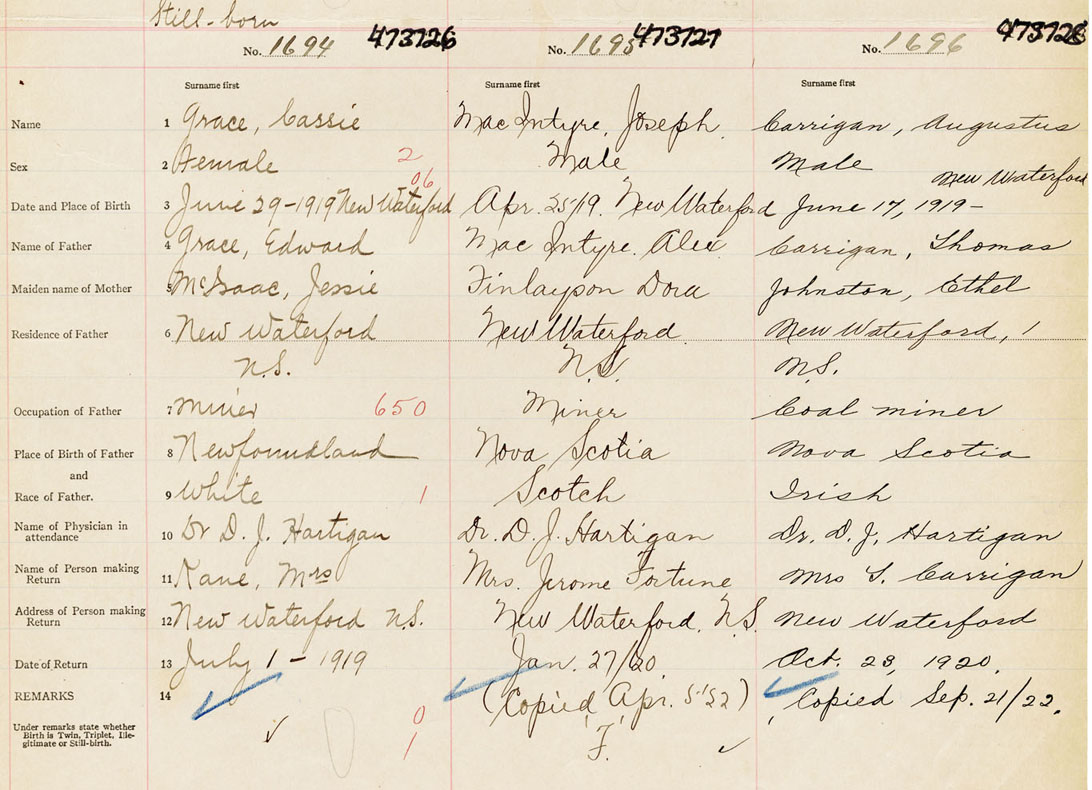 Still-born
No. 1694 473726 No. 1695 473727 No. 1696 473728
Surname first Surname first Surname first
Name 1 Grace, Cassie MacIntyre, Joseph Carrigan, Augustus
Sex 2 Female 2 Male Male
06 New Waterford
Date and Place of Birth 3 June 29-1919 New Waterford Apr. 25/19. New Waterford June 17, 1919-
Name of Father 4 Grace, Edward MacIntyre. Alex Carrigan, Thomas
Maiden name of Mother 5 McIsaac, Jessie Finlayson Dora Johnston, Ethel
Residence of Father 6 New Waterford New Waterford New Waterford,
N.S. N.S. N.S.
Occupation of Father 7 Miner 650 Miner Coal miner
Place of Birth of Father 8 Newfoundland Nova Scotia Nova Scotia
and
Race of Father. 9 White 1 Scotch Irish
Name of Physician in
attendance 10 Dr D. J. Hartigan Dr. D. J. Hartigan Dr. D. J. Hartigan
Name of Person making
Return 11 Kane, Mrs Mrs. Jerome Fortune Mrs T. Carrigan
Address of Person making
Return 12 New Waterford N.S. New Waterford. N.S. New Waterford
Date of Return 13 July 1 - 1919 Jan. 27/20 Oct. 23, 1920.
REMARKS 14 (Copied Apr. 5-'22) Copied Sep. 21/22.
Under remarks state whether
Birth is Twin, Triplet, Ille-
gitimate or Still-birth.
0
1 F.